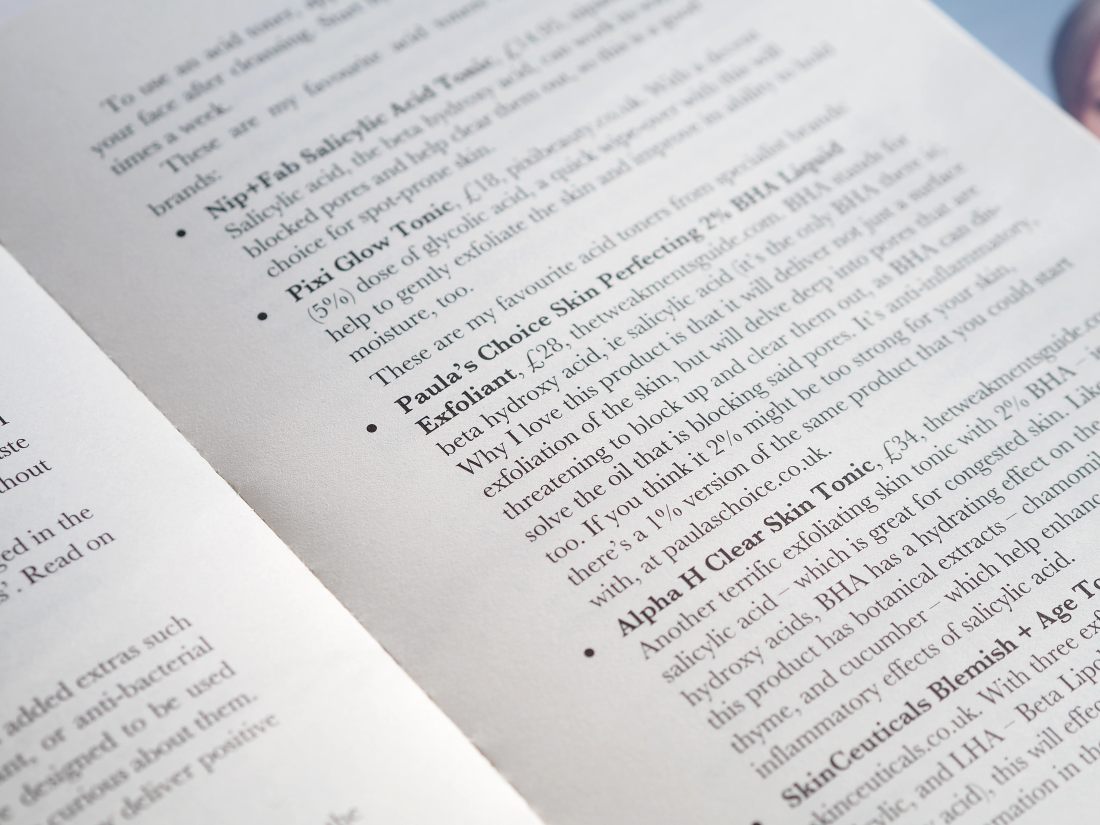 iste
thout
ged in the
s'. Read on
added extras such
ant, or anti-bacterial
e designed to be used
curious about them.
y deliver positive
the
To use an acid toner,
your face after cleaning. Start
times a week.
These are my favourite acid toners
brands:
• Nip+Fab Salicylic Acid Tonic, £14.95,
Salicylic acid, the beta hydroxy acid, can work its
blocked pores and help clear them out, so this is a good
choice for spot-prone skin.
• Pixi Glow Tonic, £18, pixibeauty.co.uk. With a decent
(5%) dose of glycolic acid, a quick wipe-over with this will
help to gently exfoliate the skin and improve its ability to hold
moisture, too.
These are my favourite acid toners from specialist brands:
• Paula's Choice Skin Perfecting 2% BHA Liquid
Exfoliant, £28, thetweakmentsguide.com. BHA stands for
beta hydroxy acid, ie salicylic acid (it's the only BHA there is).
Why I love this product is that it will deliver not just a surface
exfoliation of the skin, but will delve deep into pores that are
threatening to block up and clear them out, as BHA can dis-
solve the oil that is blocking said pores. It's anti-inflammatory,
too. If you think it 2% might be too strong for your skin,
there's a 1% version of the same product that you could start
with, at paulaschoice.co.uk.
• Alpha H Clear Skin Tonic, £34, thetweakmentsguide.co
Another terrific exfoliating skin tonic with 2% BHA –
salicylic acid – which is great for congested skin. Like
hydroxy acids, BHA has a hydrating effect on the
this product has botanical extracts – chamomil
thyme, and cucumber – which help enhanc
inflammatory effects of salicylic acid.
• SkinCeuticals Blemish + Age To
skinceuticals.co.uk. With three exf
ylic, and LHA – Beta Lipo
acid), this will effec
mation in the